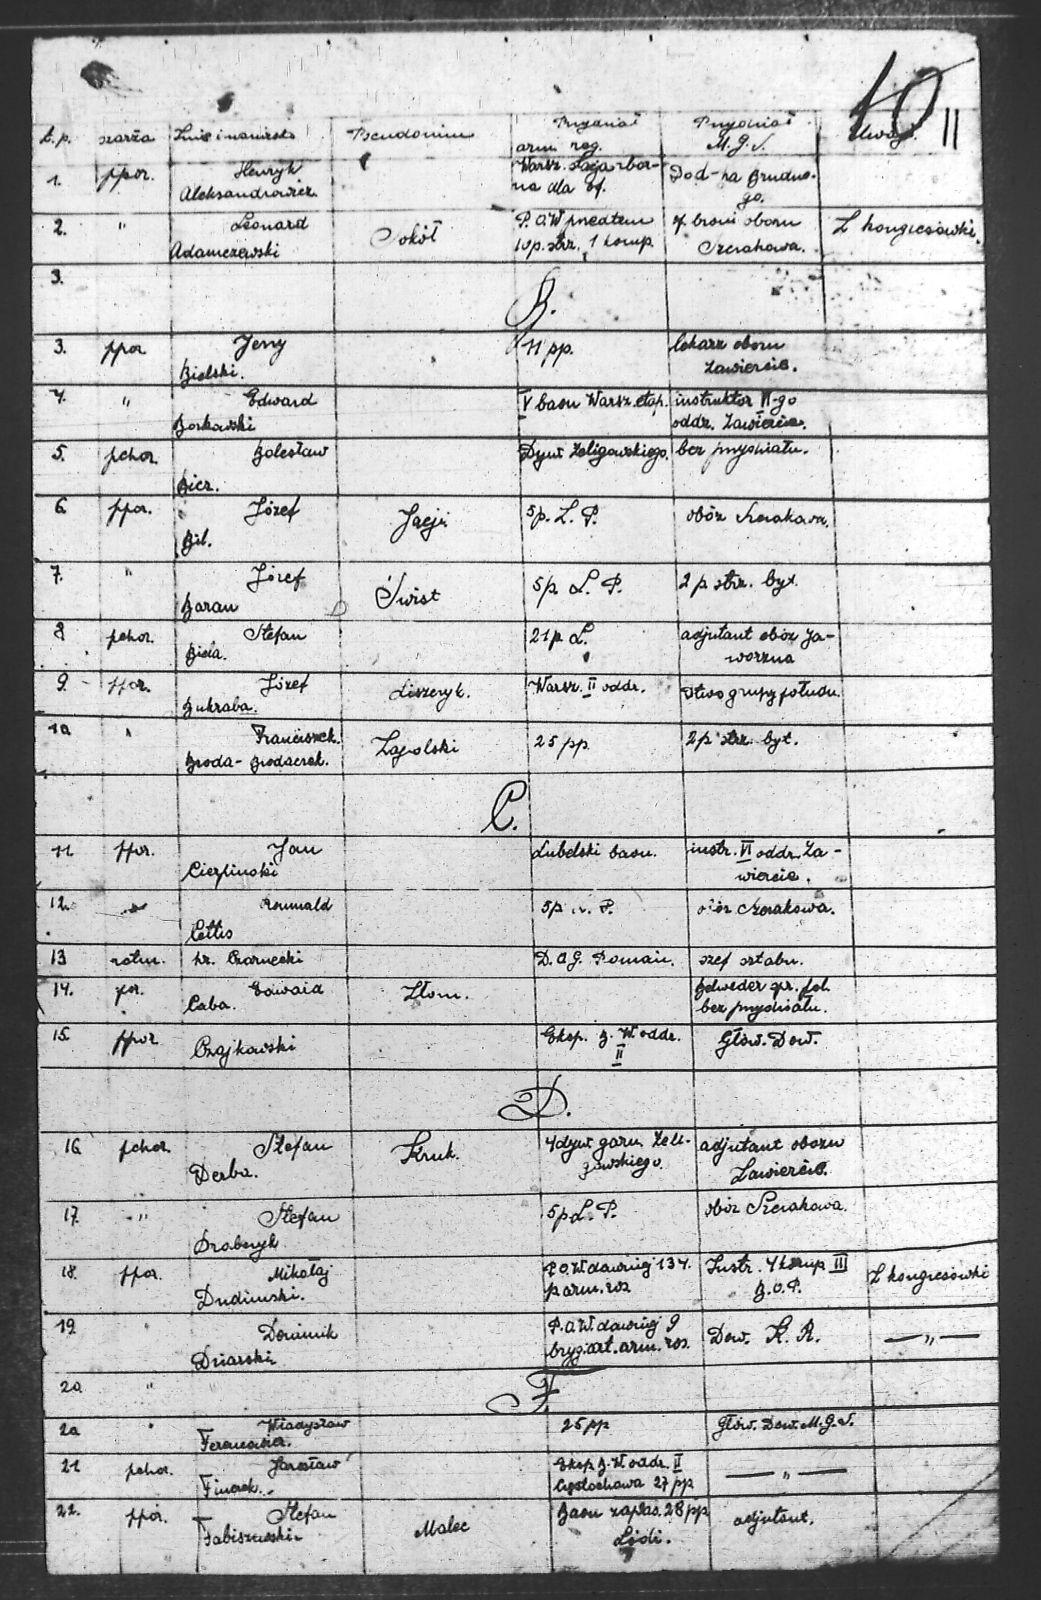 10
11
L.p. szarża Imię i nazwisko Pseudonim Przydział arm. reg. Przydział M.G.S. Uwagi
1. ppor. Henryk Aleksandrowicz Warsz. Stacja zbor-
na dla of. Dod-na
go.
2. " Leonard Adamczewski Sokół P.O.W przedtem
10 p. strz. 1 komp. of. broni obozu
Szczakowa. Z kongresówki.
3.
B.
3. ppor Jerzy Bielski. 11 pp. lekarz obozu
Zawiercie.
4. " Edward Borkowski V baon Warsz. etap. instruktor VI-go
oddz. Zawiercie.
5. pchor. Bolesław Bicz. Dyw. Żeligowskiego. bez przydziału.
6. ppor. Józef Bil. 5 p. L. P. obóz Szczakowa.
7. " Józef Baran Świst 5 p. L. P. 2 p strz. byt.
8 pchor. Stefan Biela. 21 p L. adjutant obóz Ja-
worzna
9. ppor. Józef Bukraba. Liszczyk. Warsz. II oddz. Dtwo grupy połudn.
10 " Franciszek. Broda- Brodaczek. Zapolski 25 pp 2 p strz. byt.
C.
11 ppor. Jan Lubelski baon. instr. VI oddz. Za-
wiercie.
12. " Romuald Cettis 5 p L. P. obóz Szczakowa.
13 rotm. hr. Czarnecki D.O.G. Poznań. szef sztabu.
14. por. Edward Caba. Złom. Belweder gr. poł.
bez przydziału.
15. ppor Czajkowski Eksp. B. W. oddz.
II Głów. Dow.
D.
16. pchor. Stefan Derba. Kruk. 4 dyw. gen. Żeli-
gowskiego. adjutant obozu
Zawiercie.
17. " Stefan Drobczyk 5 p L. P. obóz Szczakowa.
18. ppor. Mikołaj P.O.W dawniej 134.
p arm. ros. Instr. 4 komp III
B.O.P. Z kongresówki
19. Dominik Dziarski P.O.W dawniej 9
bryg. art. arm. ros. Dow. K. R. — " —
20 "
F.
20 " Władysław 25 pp Głów. Dow. M.G.S.
21 pchor. Jarosław Eksp B. W oddz. II
Częstochowa 27 pp — " —
22. ppor. Stefan Fabiszewski Malec Baon zapas. 28 pp
Łódź. adjutant.